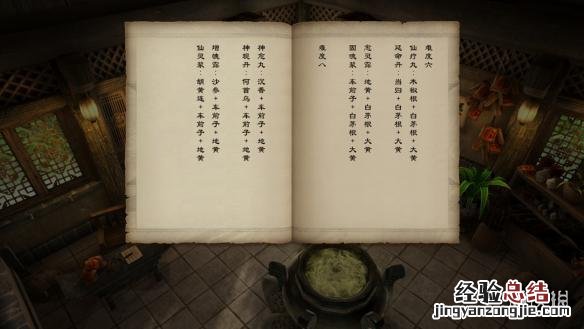 难度六
仙疗丸：木椒根+大黄
延命丹：当归+白茅根+大黄
愈灵露：地黄+白茅根+大黄
固魂聚：车前子+白茅根+大黄
难度八
神愈丸：沉香+车前子+地黄
神祝丹：何首乌+车前子+地黄
增魄露：沙参+车前子+地黄
仙灵聚：胡黄连+车前子+地黄
经验总结
www.jingyanzongjie.com